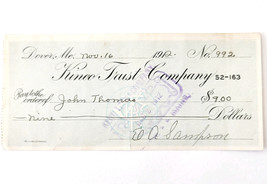 Dover, Me. Nov. 16 1912 No. 992
Kineo Trust Company 52-163
Pay to the order of John Thomas $9.00
Nine Dollars
D A Sampson